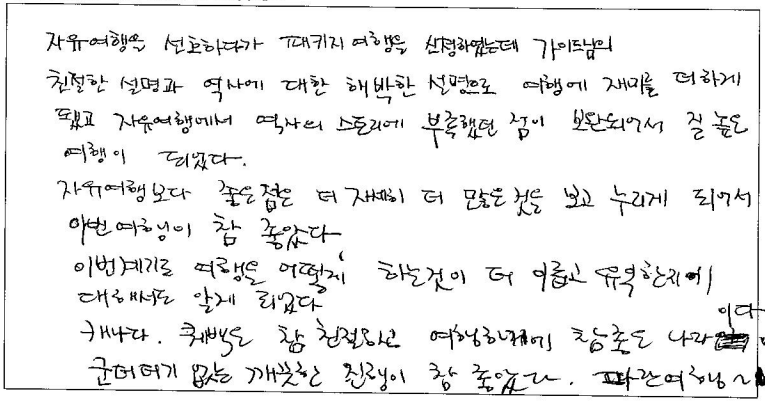 자유여행을 선호하다가 패키지 여행을 신청하였는데 가이드님의
친절한 설명과 역사에 대한 해박한 설명으로 여행에 재미를 더하게
됐고 자유여행에서 역사의 스토리에 부족했던 점이 보완되어서 질 높은
여행이 되었다.
자유여행보다 좋은점은 더 자세히 더 많은것을 보고 누리게 되어서
이번여행이 참 좋았다
이번계기로 여행을 어떻게 하는것이 더 이롭고 유익한지에
대해서도 알게 되었다
캐나다. 퀘백은 참 친절하고 여행하기에 참 좋은 나라이다
군더더기 없는 깨끗한 진행이 참 좋았다. 파란여행~